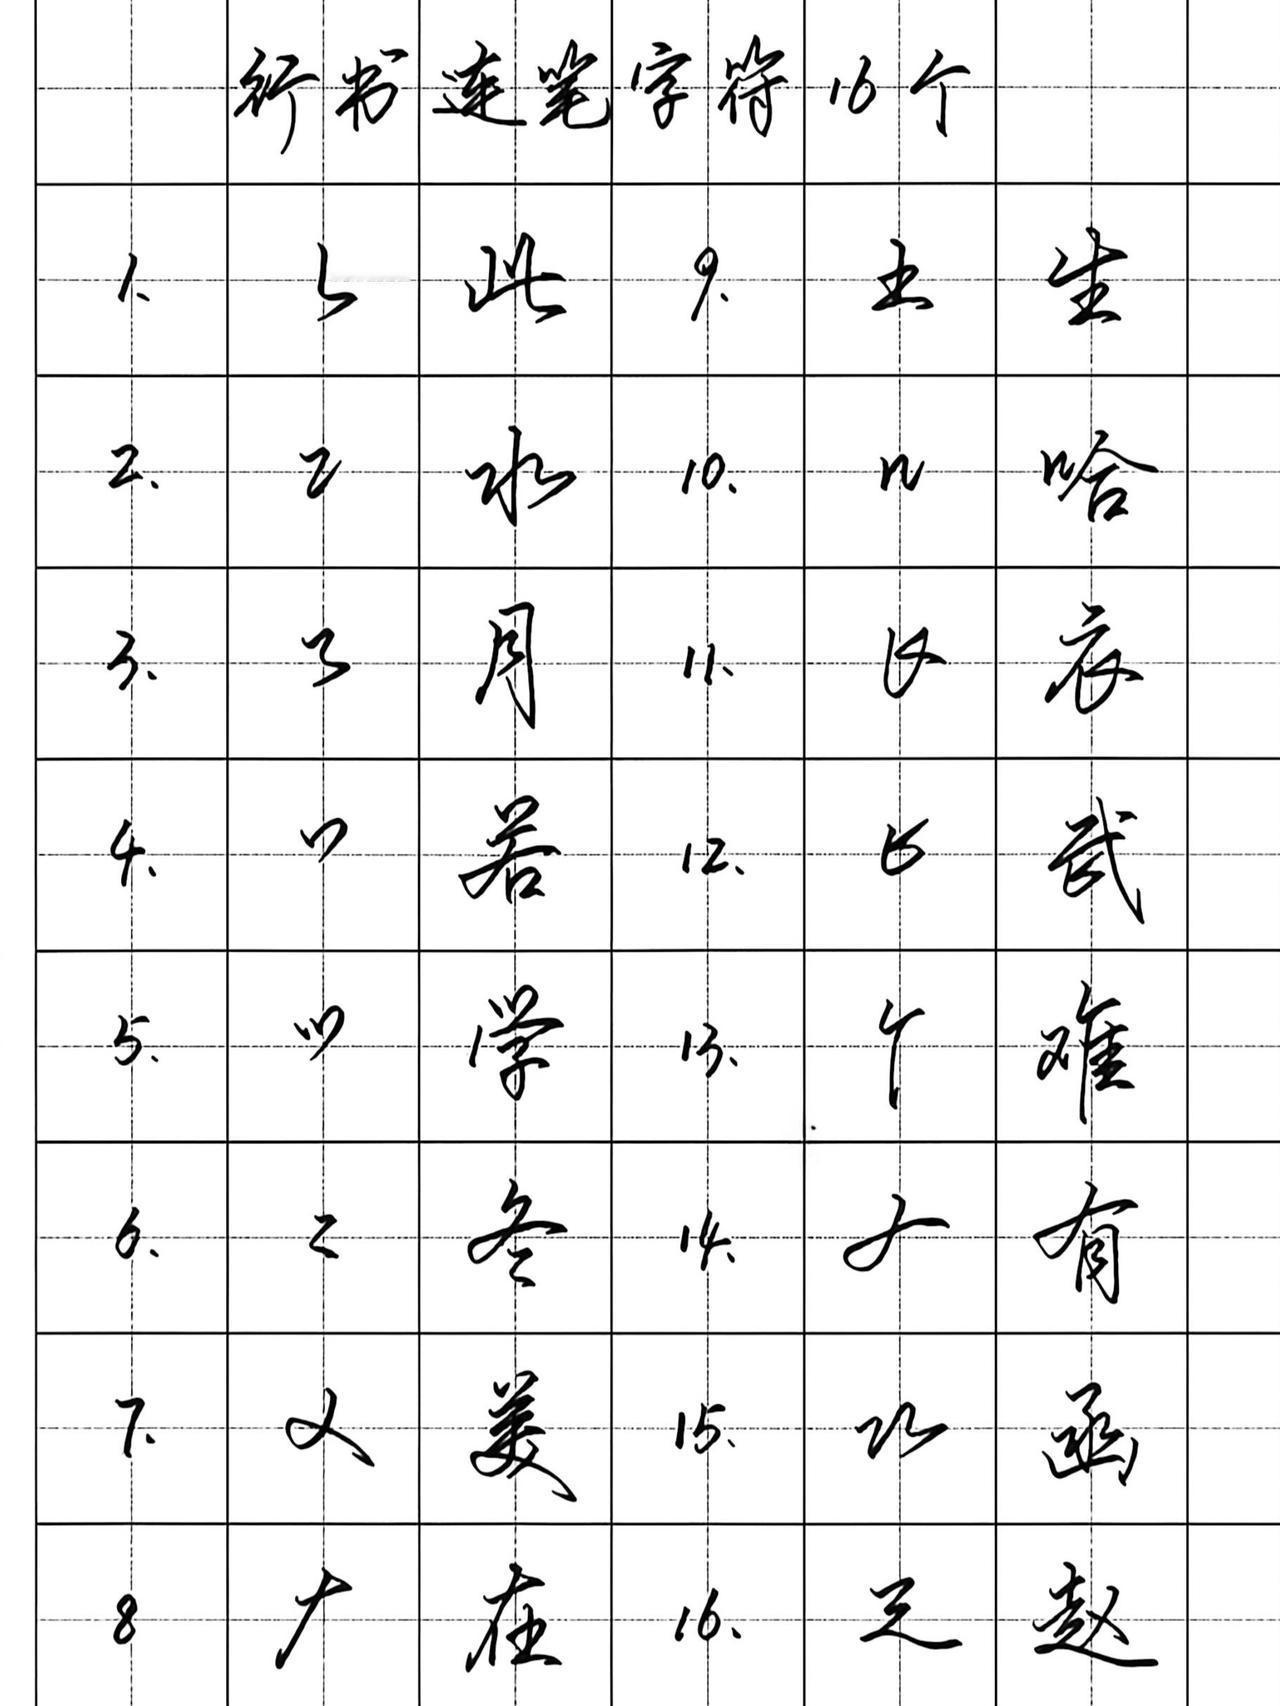 行书连笔字符16个
1、 此 9、 生
2、 水 10、 哈
3、 月 11、 衣
4、 若 12、 武
5、 学 13、 难
6、 冬 14、 有
7、 美 15、 函
8 在 16、 赵